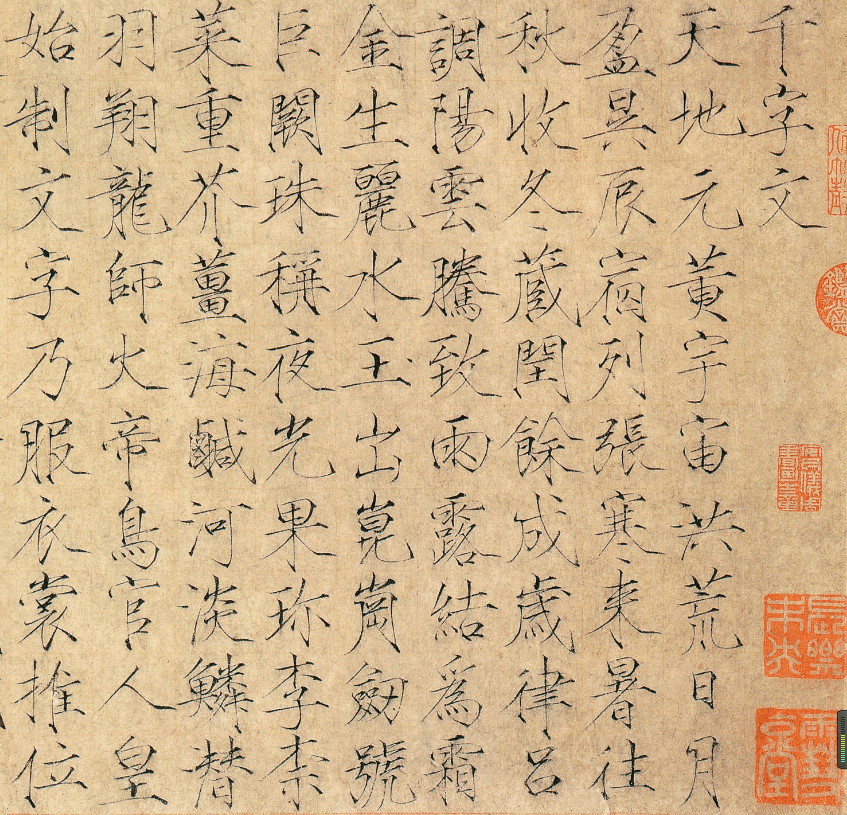 千字文
天地元黃宇宙洪荒日月
盈昃辰宿列張寒来暑往
秋收冬藏閏餘成歲律呂
調陽雲騰致雨露結爲霜
金生麗水玉出崑崗劒號
巨闕珠稱夜光果珎李柰
菜重芥薑海鹹河淡鱗潜
羽翔龍師火帝鳥官人皇
始制文字乃服衣裳推位